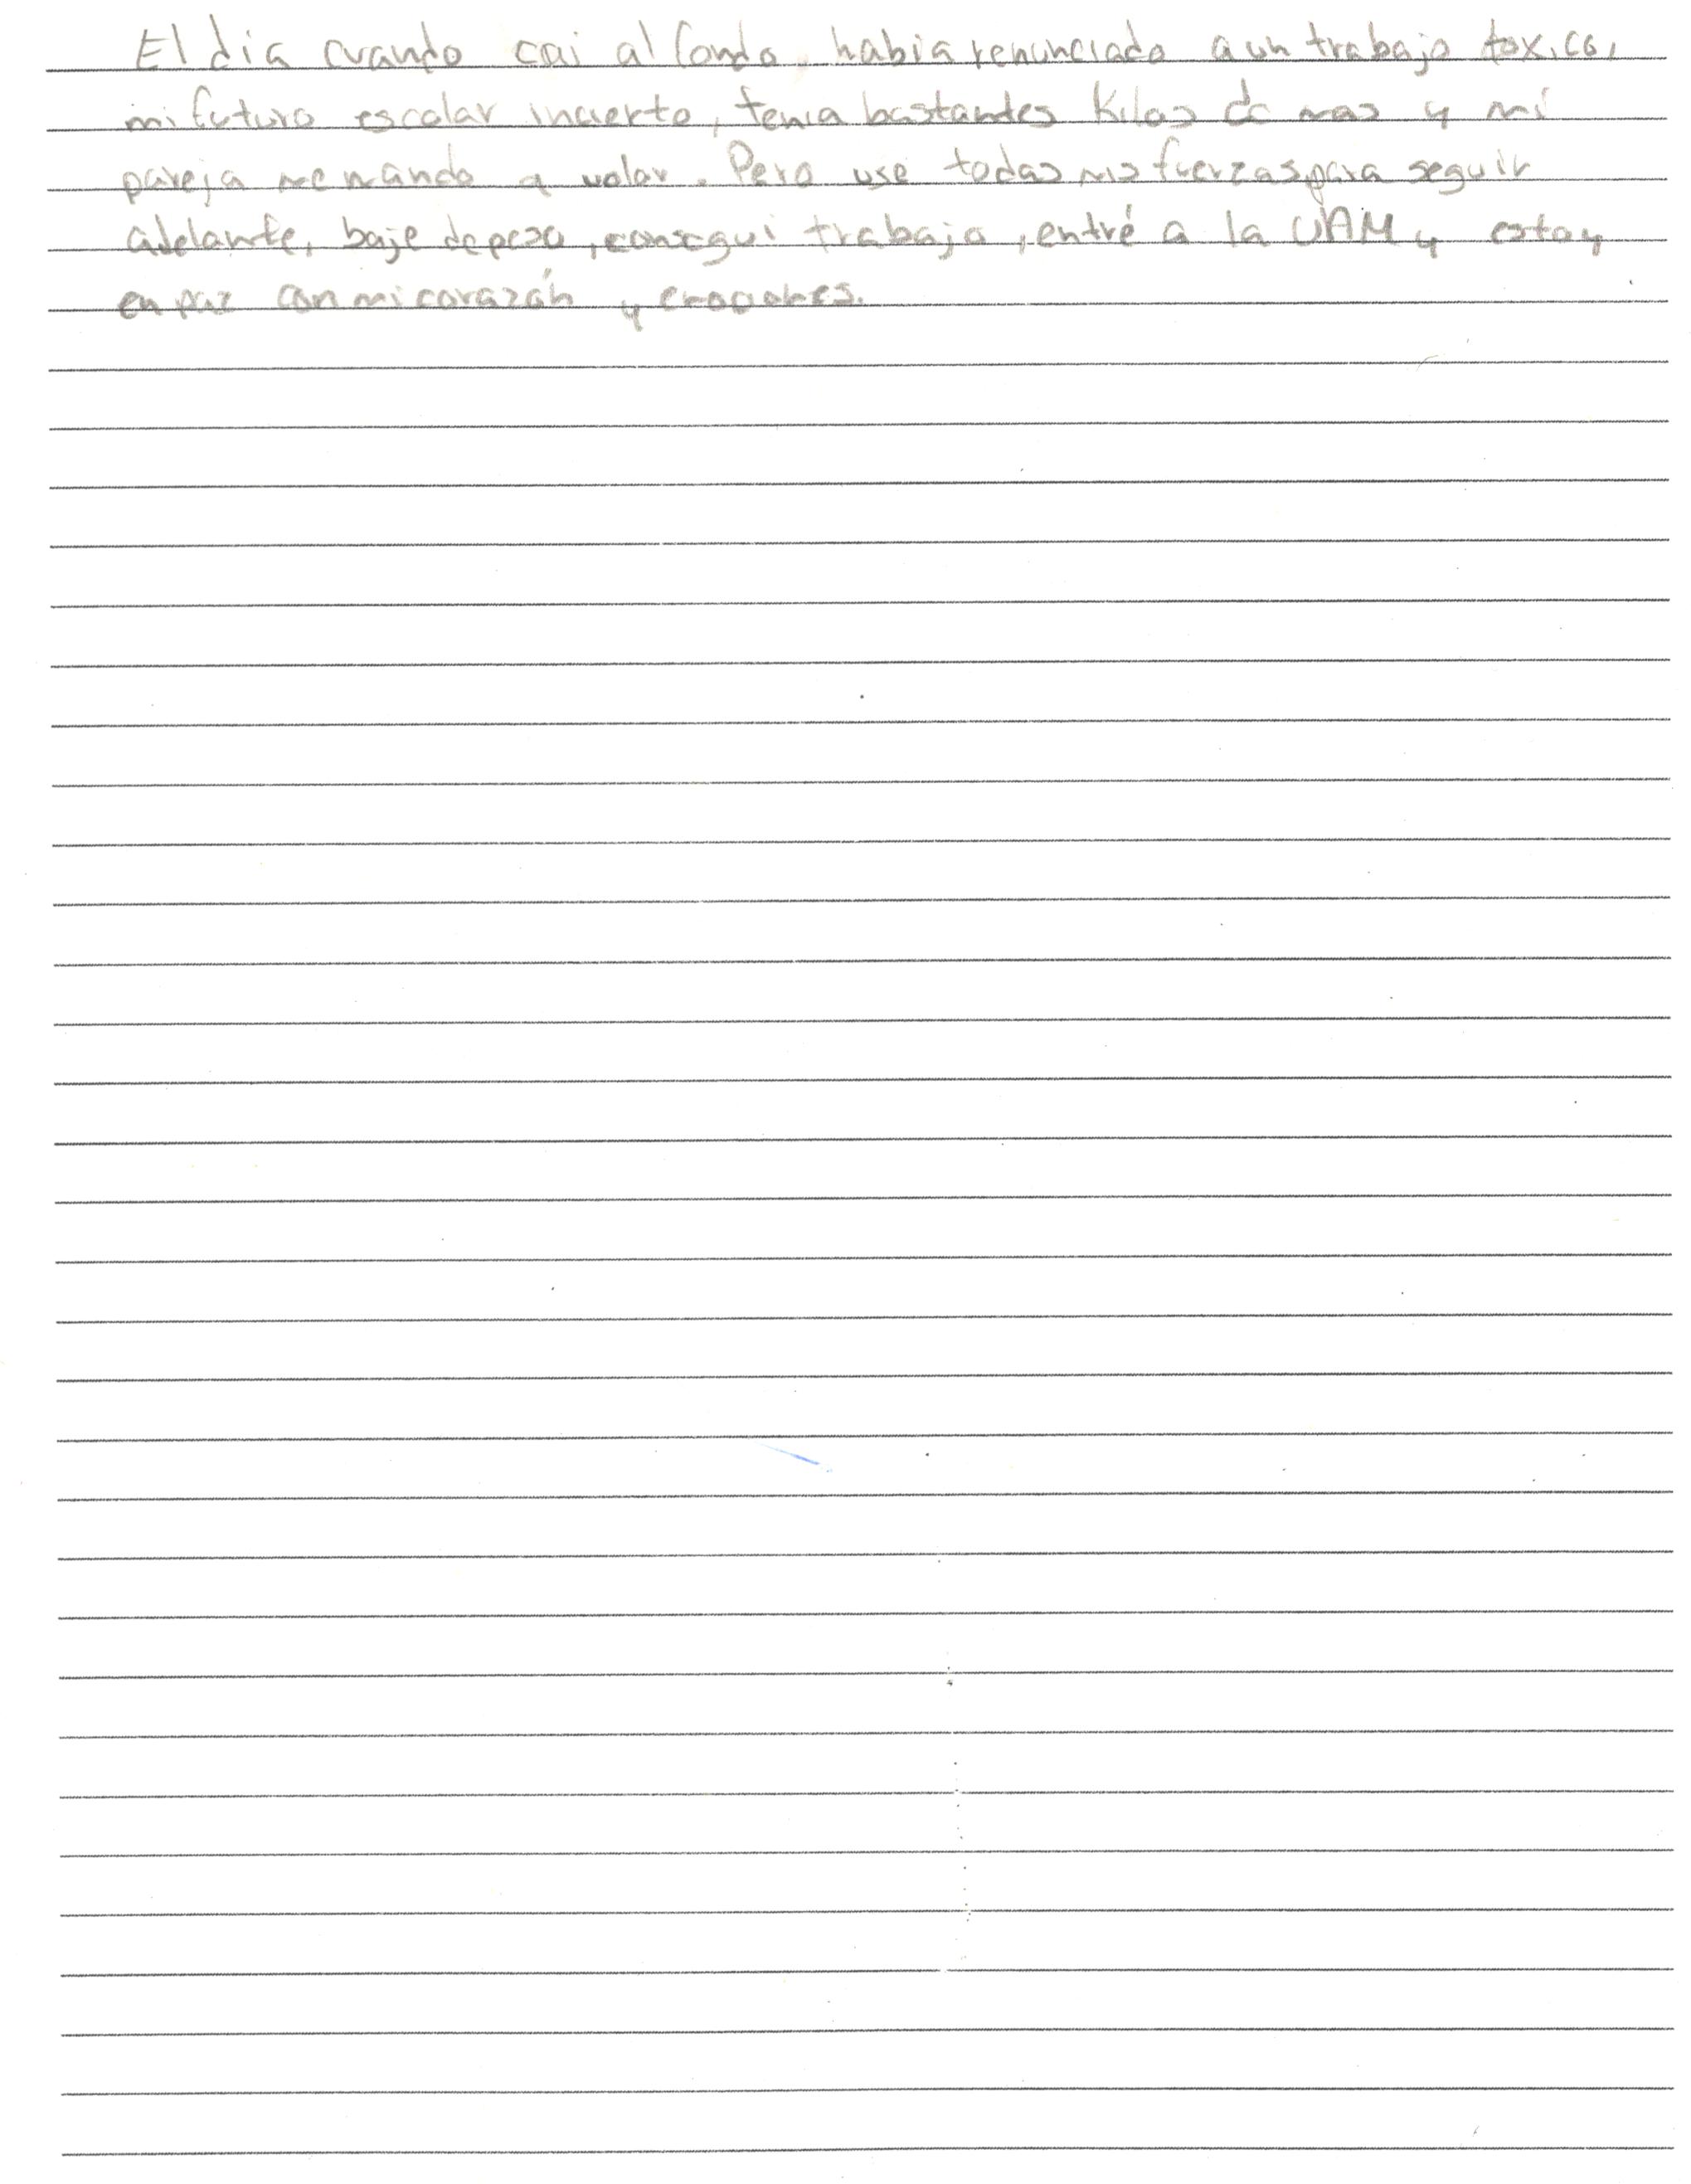 El dia cuando cai al fondo, habia renunciado a un trabajo toxico,
mi futuro escolar incierto, tenia bastantes kilos de mas y mi
pareja me mando a volar. Pero use todas mis fuerzas para seguir
adelante, baje de peso, consegui trabajo, entré a la UAM y estoy
en paz con mi corazón y emociones.